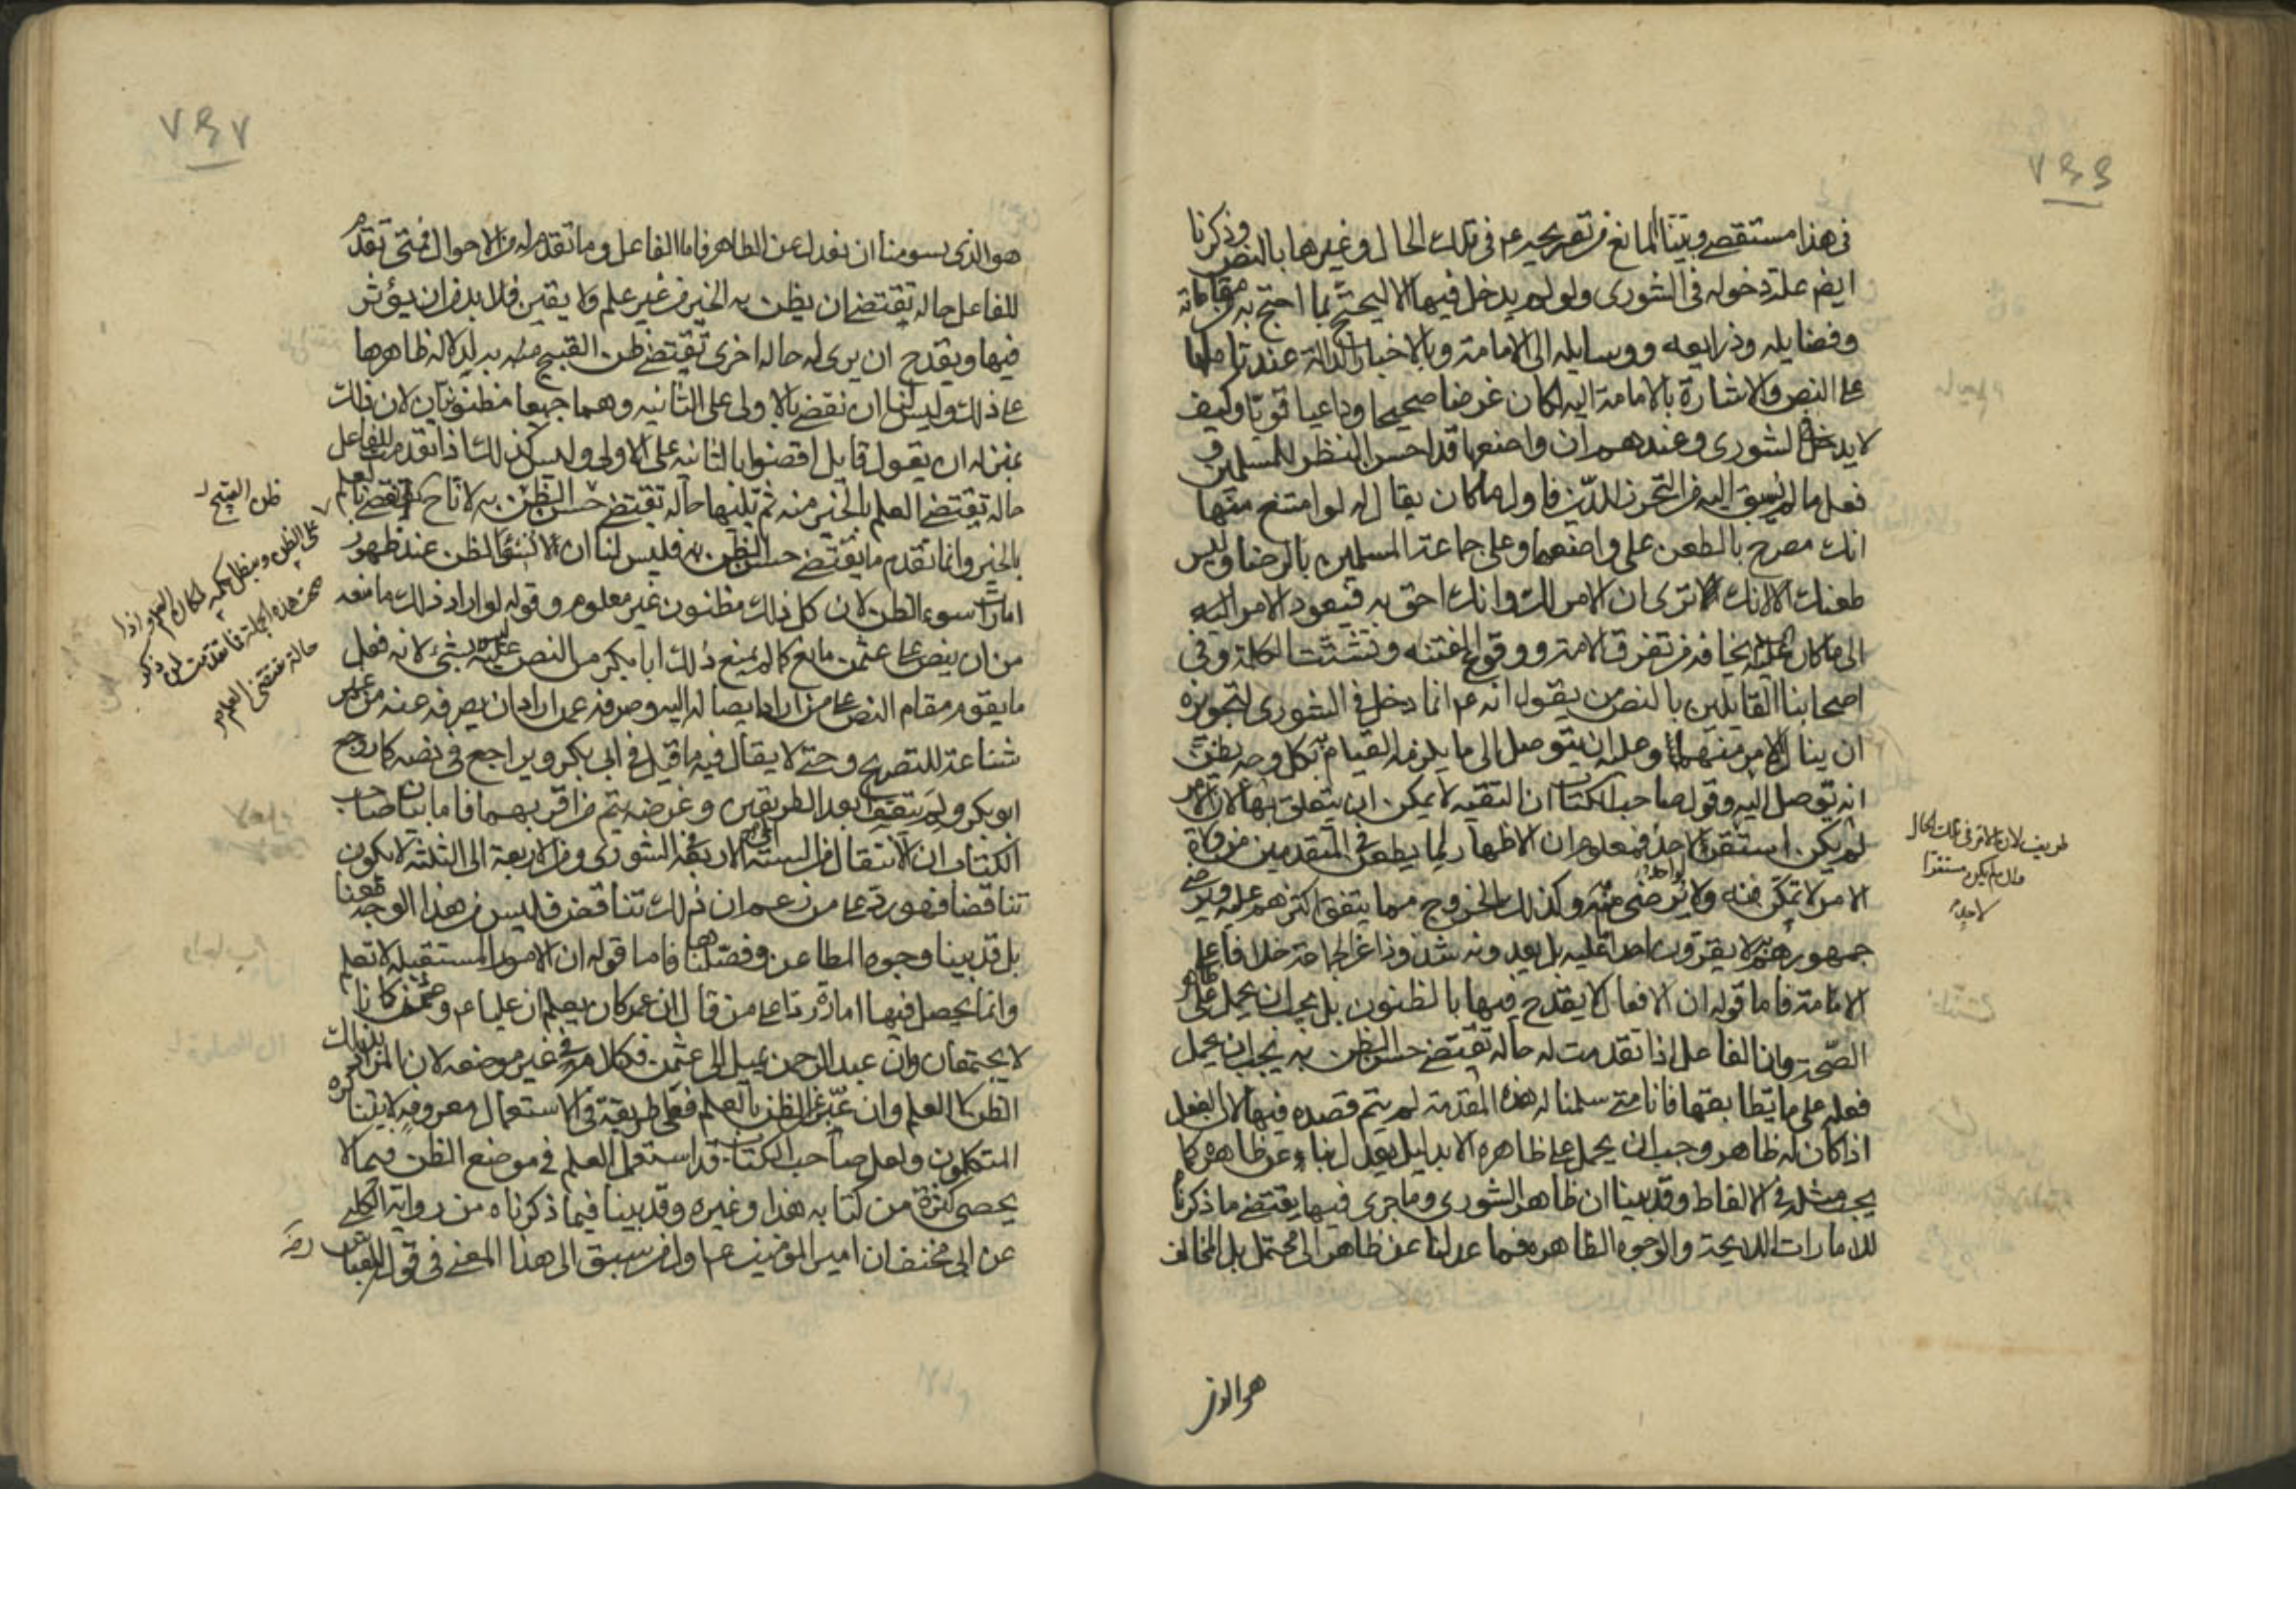 في هذا مستقصى وبينا المانع من تصريحه ع م في تلك الحال وغيرها بالنص وذكرنا
ايضا علة دخوله في الشورى ولو لم يدخل فيها الا ليحتج بما احتج به من مقاماته
وفضايله وذرايعه ووسايله الى الامامة وبالاخبار الدالة عند تاملها
على النص والاشارة بالامامة اليه لكان غرضا صحيحا وداعيا قويا وكيف
لا يدخل الشورى وعندهم ان واضعها قد احسن النظر للمسلمين و
فعل ما لم يسبق اليه من التحرز للدين فاول ما كان يقال له لو امتنع منها
انك مصرح بالطعن على واضعها وعلى جماعة المسلمين بالرضا وليس
طعنك الا لانك ترى ان الامر لك وانك احق به فيعود الامر اليه
الى ما كان عليه يخافه من تفرق الامة ووقوع الفتنة وتشتت الكلمة وفي
اصحابنا القايلين بالنص من يقول انه ع م انما دخل في الشورى لتجويزه
ان ينال الامر منها وعليه ان يتوصل الى ما يلزمه القيام به بكل وجه يظن
انه توصل اليه وقول صاحب الكتاب ان التقية لا يمكن ان يتعلق بها لان الامر
لم يكن استقر لاحد فمعلوم ان الاظهار لما يطعن في المتقدمين من ولاة
الامر لا تمكن منه ولا يرضى منه وكذلك الخروج مما يتفق اكثرهم عليه ويرضى
جمهورهم به لا يقرون احدا عليه بل يعدونه شذوذا عن الجماعة وخلافا على
الامامة فاما قوله ان الافعال لا يقدح فيها بالظنون بل يجب ان يحمل على ظاهر
الصحة وان الفاعل اذا تقدمت له حالة تقتضي حسن الظن به يجب ان يحمل
فعله على ما يطابقها فانا متى سلمنا له هذه المقدمة لم يتم قصده فيها لان الفعل
اذا كان له ظاهر وجب ان يحمل على ظاهره الا بدليل يعدل بنا عن ظاهره كما
يجب مثله في الالفاظ وقد بينا ان ظاهر الشورى وما جرى فيها يقتضي ما ذكرنا
للامارات اللايحة والوجوه الظاهره فما عدلنا عن ظاهر الى محتمل بل المخالف
هو الذي
هو الذي يسومنا ان نعدل عن الظاهر فاما الفاعل وما تقدم له من الاحوال فمتى تقدم
للفاعل حالة تقتضي ان يظن به الخير من غير علم ولا يقين فلا بد من ان يؤثر
فيها ويقدح ان يرى له حالة اخرى تقتضي ظن القبيح منه به لدلالة ظاهرها
على ذلك وليس لنا ان نقضي بالاولى على الثانيه وهما جميعا مظنونتان لان ذلك
بمنزلة ان يقول قايل اقضوا بالثانيه على الاولى وليس كذلك اذا تقدمت للفاعل
حالة تقتضي العلم بالخير منه ثم تليها حالة تقتضي
بالخير وانما تقدم ما يقتضي حسن الظن به فليس لنا ان لا نسئ الظن عند ظهور
امارات سوء الظن لان كل ذلك مظنون غير معلوم وقوله لو اراد ذلك ما منعه
من ان ينص على عثمن مانع كما لم يمنع ذلك ابا بكر من النص عليه ليس بشئ لانه فعل
ما يقوم مقام النص على من اراد ايصاله اليه وصرفه عمن اراد ان يصرفه عنه من غير
شناعة للتصريح وحتى لا يقال فيه ما قيل في ابي بكر ويراجع في نصه كما روجع
ابو بكر ولم يتعسف ابعد الطريقين وغرضه يتم من اقربهما فاما بيان صاحب
الكتاب ان الانتقال من الستة الى الاربعة في الشورى ومن الاربعة الى الثلثة لا يكون
تناقضا فهو رد على من زعم ان ذلك تناقض فليس من هذا الوجه طعنا
بل قد بينا وجوه المطاعن وفصلناها فاما قوله ان الامور المستقبلة لا تعلم
وانما يحصل فيها امارة ردا على من قال ان عمر كان يعلم ان عليا ع م وعثمن
لا يجتمعان وان عبد الرحمن يميل الى عثمن فكلام في غير موضعه لان المراد بذلك
الظن لا العلم وان عبر عن الظن بالعلم فعلى طريقة في الاستعمال معروفة لا يتناكره
المتكلمون ولعل صاحب الكتاب قد استعمل العلم في موضع الظن فيما لا
يحصى كثرة من كتابه هذا وغيره وقد بينا فيما ذكرناه من رواية الكلبي
عن ابي مخنف ان امير المؤمنين ع م اول من سبق الى هذا المعنى في قوله للعباس رض
ظن القبيح
حالة تقتضي العلم